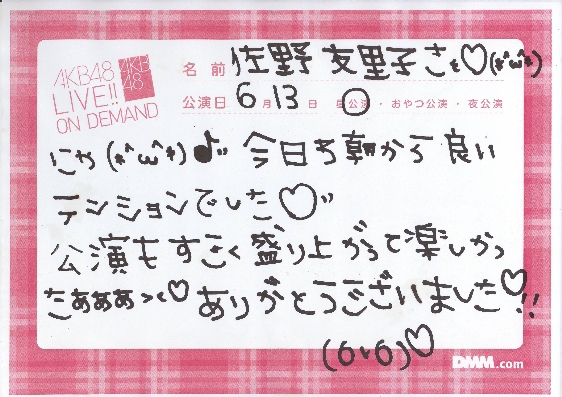 AKB48
LIVE!!
ON DEMAND
AKB
48
名前 佐野 友里子さぁ♡(*´ω`*)
公演日 6月13日 昼公演・おやつ公演・夜公演
にゃ(*´ω`*)♪" 今日も朝から良い
テンションでした♡"
公演もすごく盛り上がって楽しかっ
たあああ><♡ ありがとうございました♡!!
(6v6)♡
DMM.com